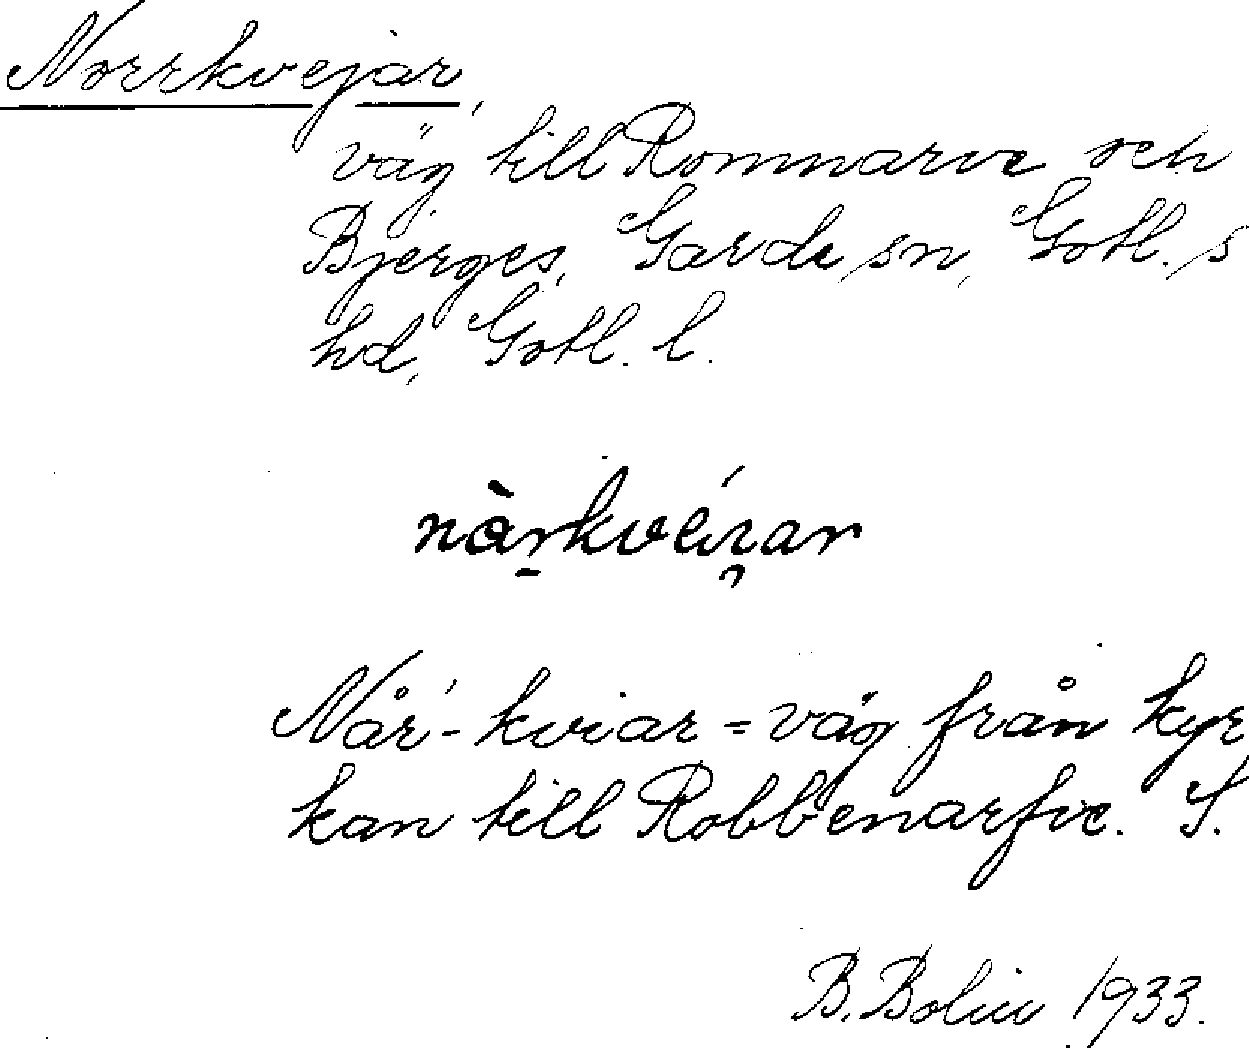 Norrkvejar,
väg till Rommarve och
Bjerges, Garde sn, Gotl. s
hd, Gotl. l.
Når'-kviar = väg från kyr
kan till Robbenarfve. S.
B. Bolin 1933.